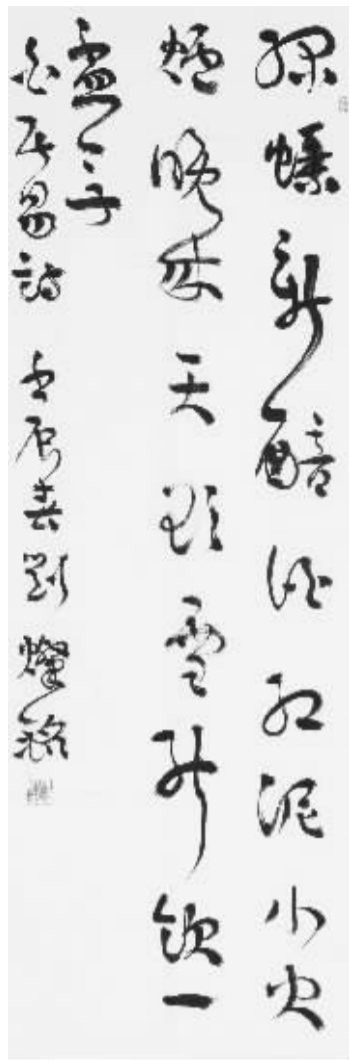 綠蟻新醅酒紅泥小火
爐晚來天欲雪能飲一
盃無
白居易詩 壬辰春劉燦銘